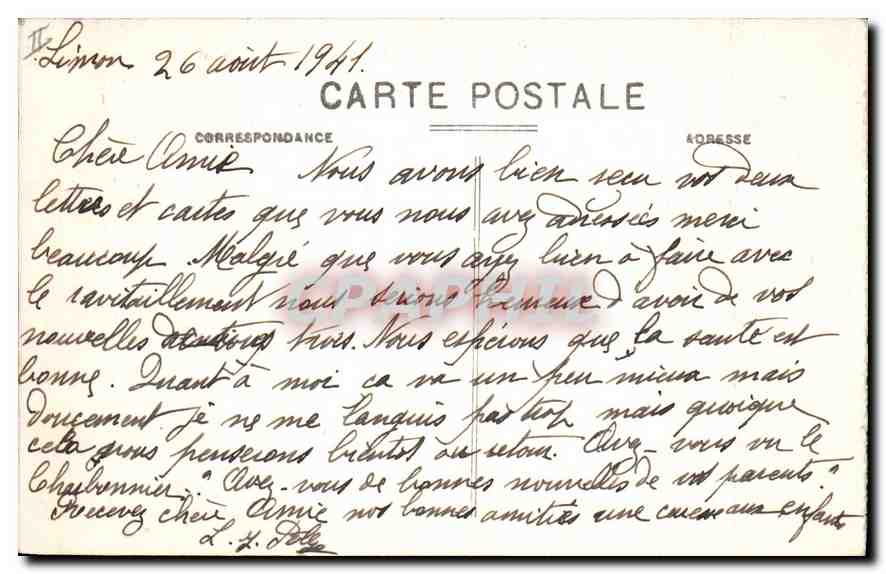 II
Limon 26 août 1941.
CARTE POSTALE
CORRESPONDANCE ADRESSE
Chère Amie Nous avons bien recu vos deux
lettres et cartes que vous nous avez adressés merci
beaucoup. Malgré que vous ayez bien à faire avec
le ravitaillement nous serions heureux d'avoir de vos
nouvelles trois. Nous espérons que la santé est
bonne. Quant à moi ca va un peu mieux mais
doucement je ne me languis pas trop mais quoique
cela nous penserons bientôt au retour. Avez-vous vu le
Charbonnier. Avez-vous de bonnes nouvelles de vos parents.
Recevez chère Amie nos bonnes amitiés une caresse aux enfants
L. J.
CPAPHIL